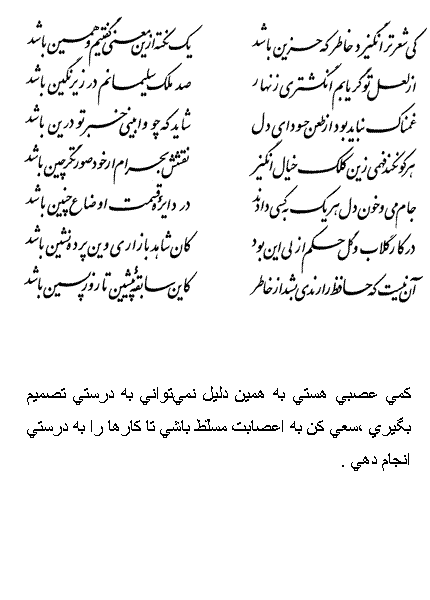 کی شعر تر انگیزد خاطر که حزین باشد یک نکته ازین معنی گفتیم و همین باشد
از لعل تو گر یابم انگشتری زنهار صد ملک سلیمانم در زیر نگین باشد
غمناک نباید بود از طعن حسود ای دل شاید که چو وابینی خیر تو درین باشد
هر کو نکند فهمی زین کلک خیال انگیز نقشش بحرام ار خود صورتگر چین باشد
جام می و خون دل هر یک به کسی دادند در دایرهٔ قسمت اوضاع چنین باشد
در کار گلاب و گل حکم ازلی این بود کان شاهد بازاری وین پرده نشین باشد
آن نیست که حافظ را رندی بشد از خاطر کاین سابقهٔ پیشین تا روز پسین باشد
كمي عصبي هستي به همين دليل نمي‌تواني به درستي تصميم
بگيري ،سعي كن به اعصابت مسلّط باشي تا كارها را به درستي
انجام دهي .